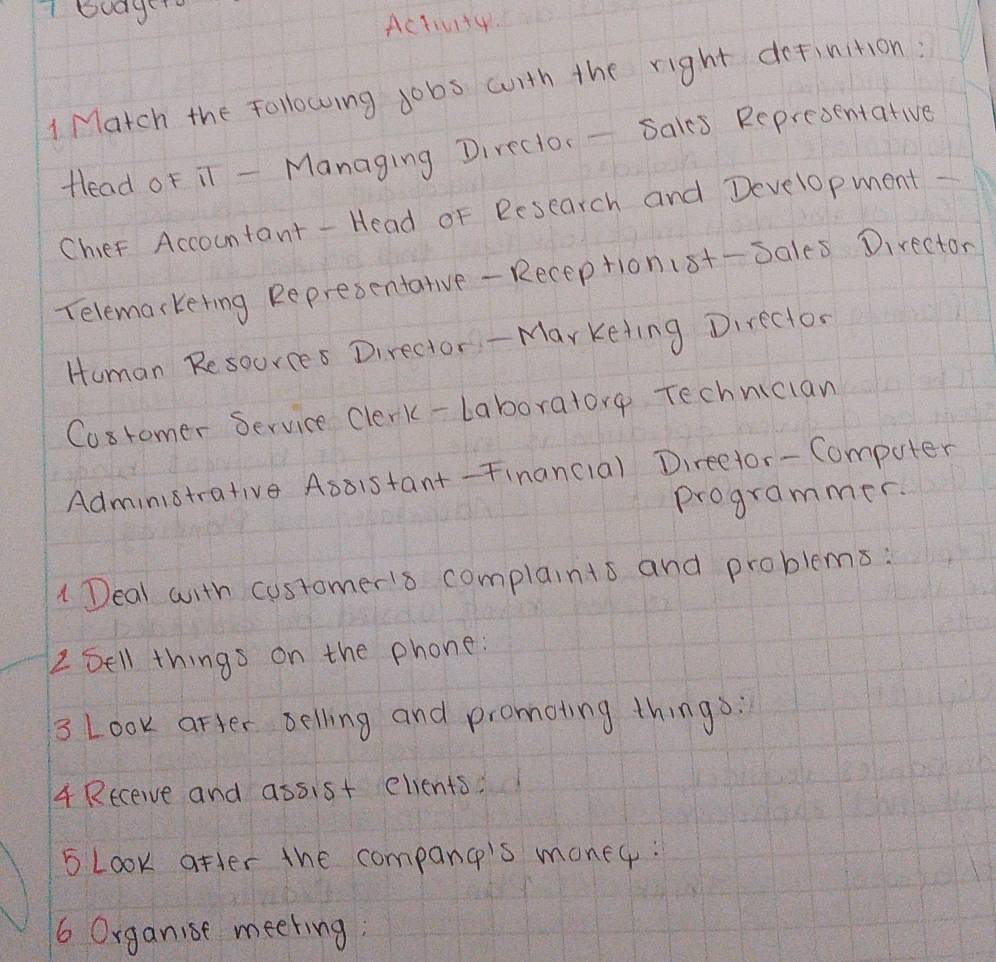 7 Budgets
Activity.
1 Match the following jobs with the right definition:
Head of IT - Managing Director - Sales Representative
Chief Accountant - Head of Research and Development -
Telemarketing Representative - Receptionist - Sales Director
Human Resources Director - Marketing Director
Customer Service Clerk - Laboratory Technician
Administrative Assistant - Financial Director - Computer
programmer.
1 Deal with customer's complaints and problems:
2 Sell things on the phone:
3 Look after selling and promoting things:
4 Receive and assist clients:
5 Look after the company's money:
6 Organise meeting: